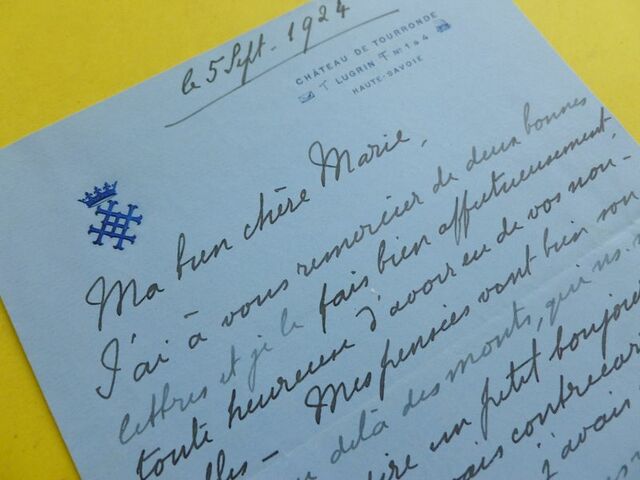 le 5 Sept. 1924
CHÂTEAU DE TOURRONDE
LUGRIN T Nº 1 à 4
HAUTE-SAVOIE
Ma bien chère Marie,
J'ai à vous remercier de deux bonnes
lettres et je le fais bien affectueusement,
toute heureuse d'avoir eu de vos nou-
velles - Mes pensées vont bien sou
delà des monts, qui ns.
dire un petit bonjour
contrecar
j'avais